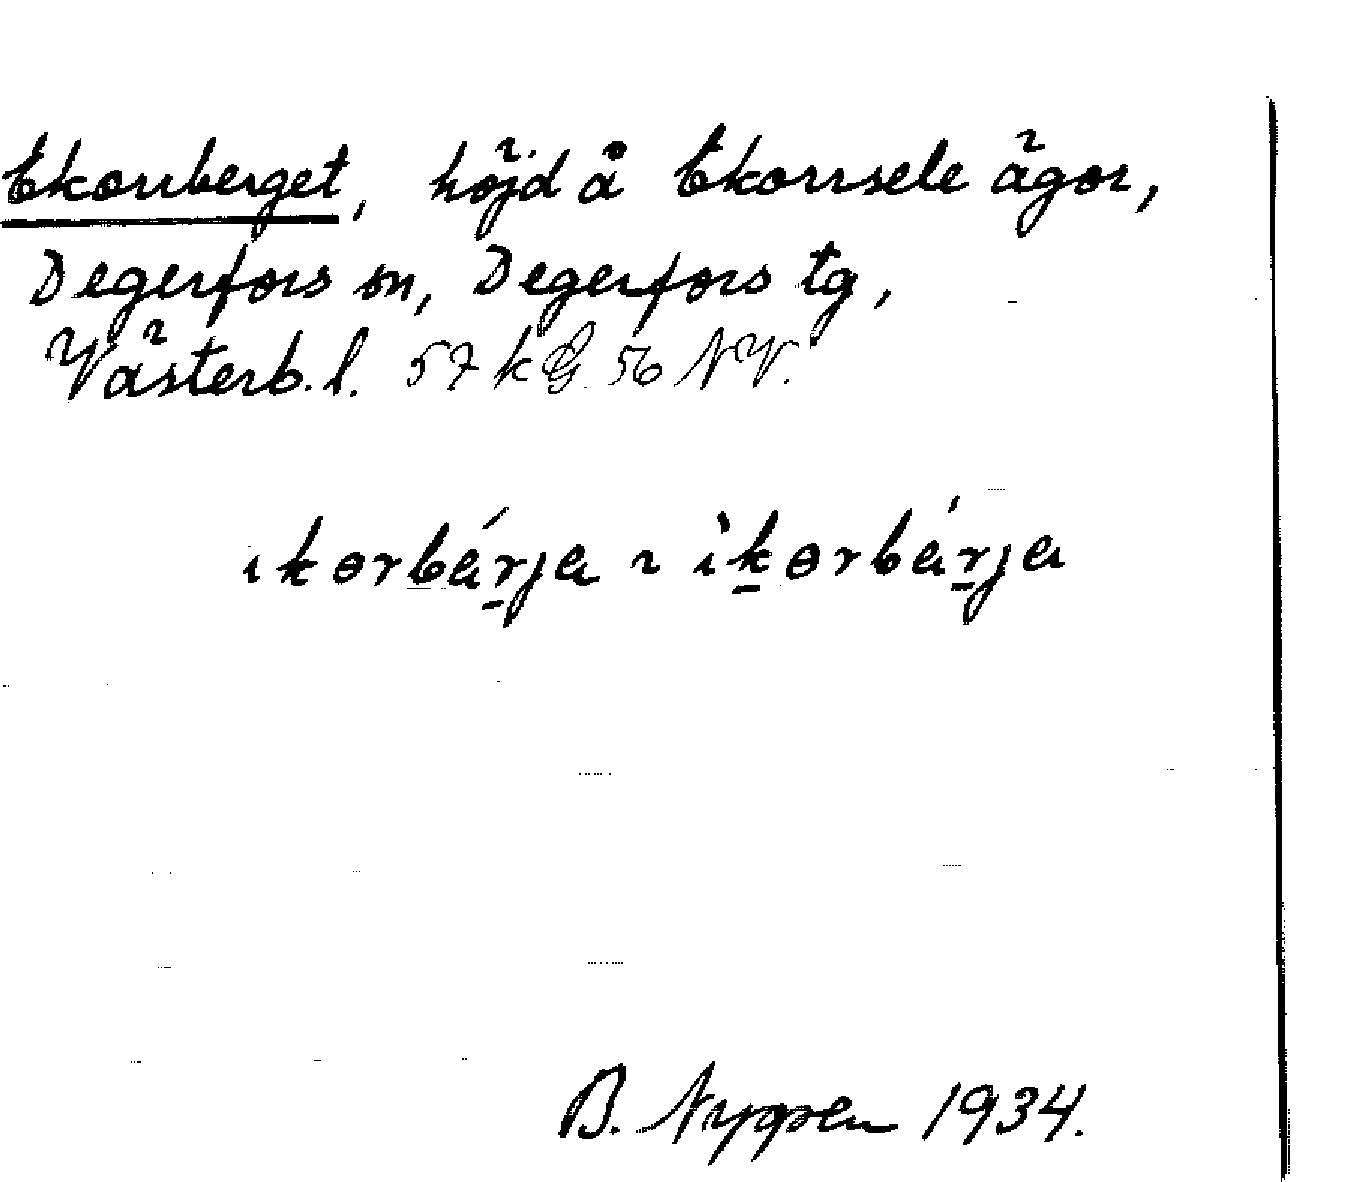 Ekorrberget, höjd å Ekorrsele ägor,
Degerfors sn, Degerfors tg,
Västerb. l. 57 k G. 56 NV.
ıkɵrbárja ~ ìkɵrbárja
B. Nygren 1934.